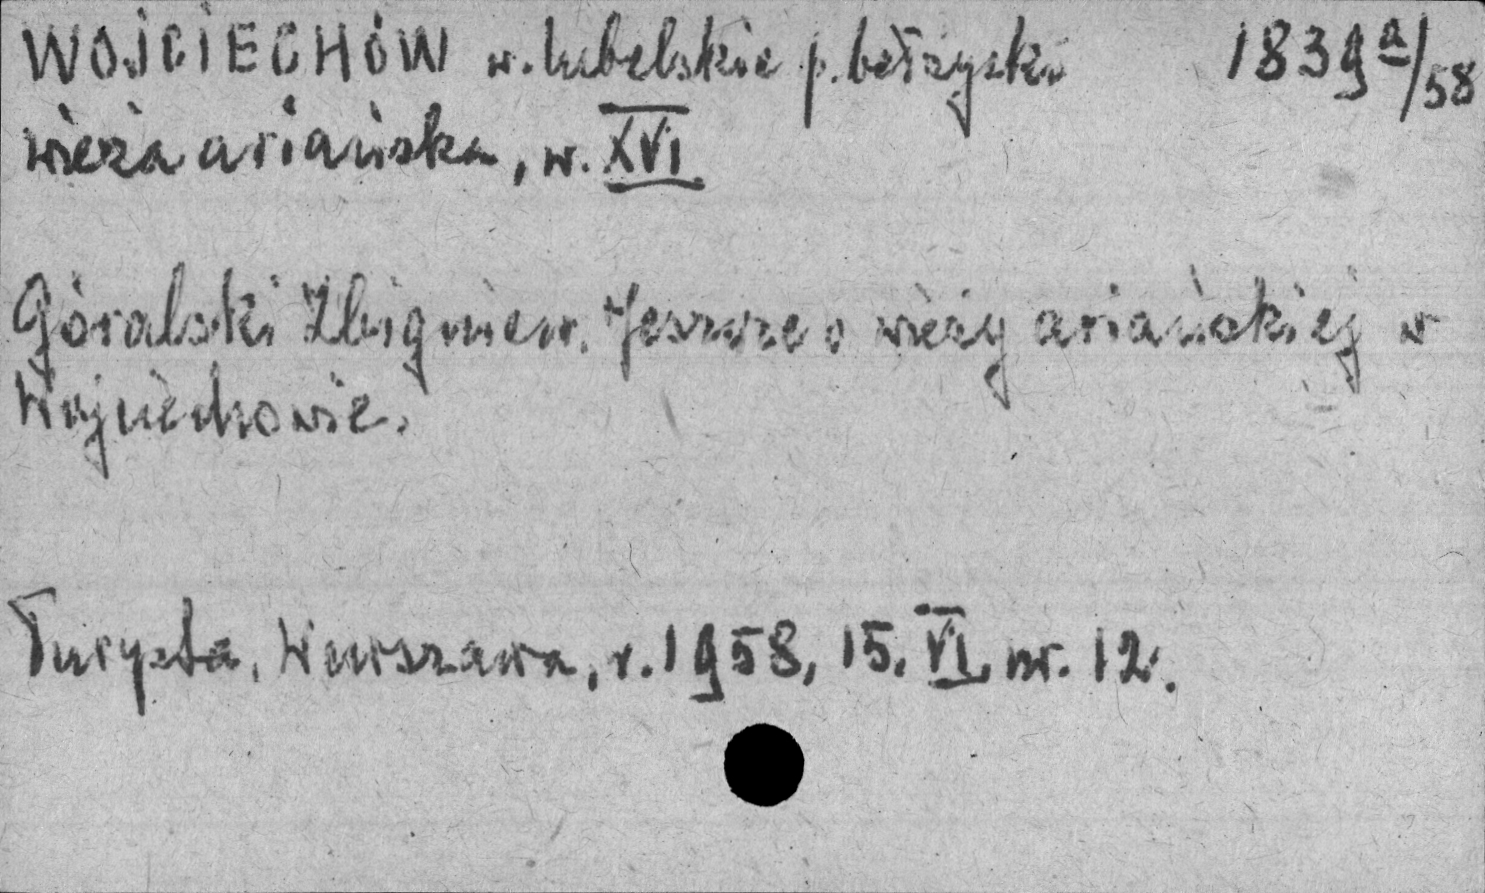 WOJCIECHÓW w. lubelskie p. bełżyckie 1839a/58
wieża ariańska, w. XVI
Góralski Zbigniew. Jeszcze o wieży ariańskiej w
Wojciechowie.
Turysta, Warszawa, r. 1958, 15. VI, nr. 12.